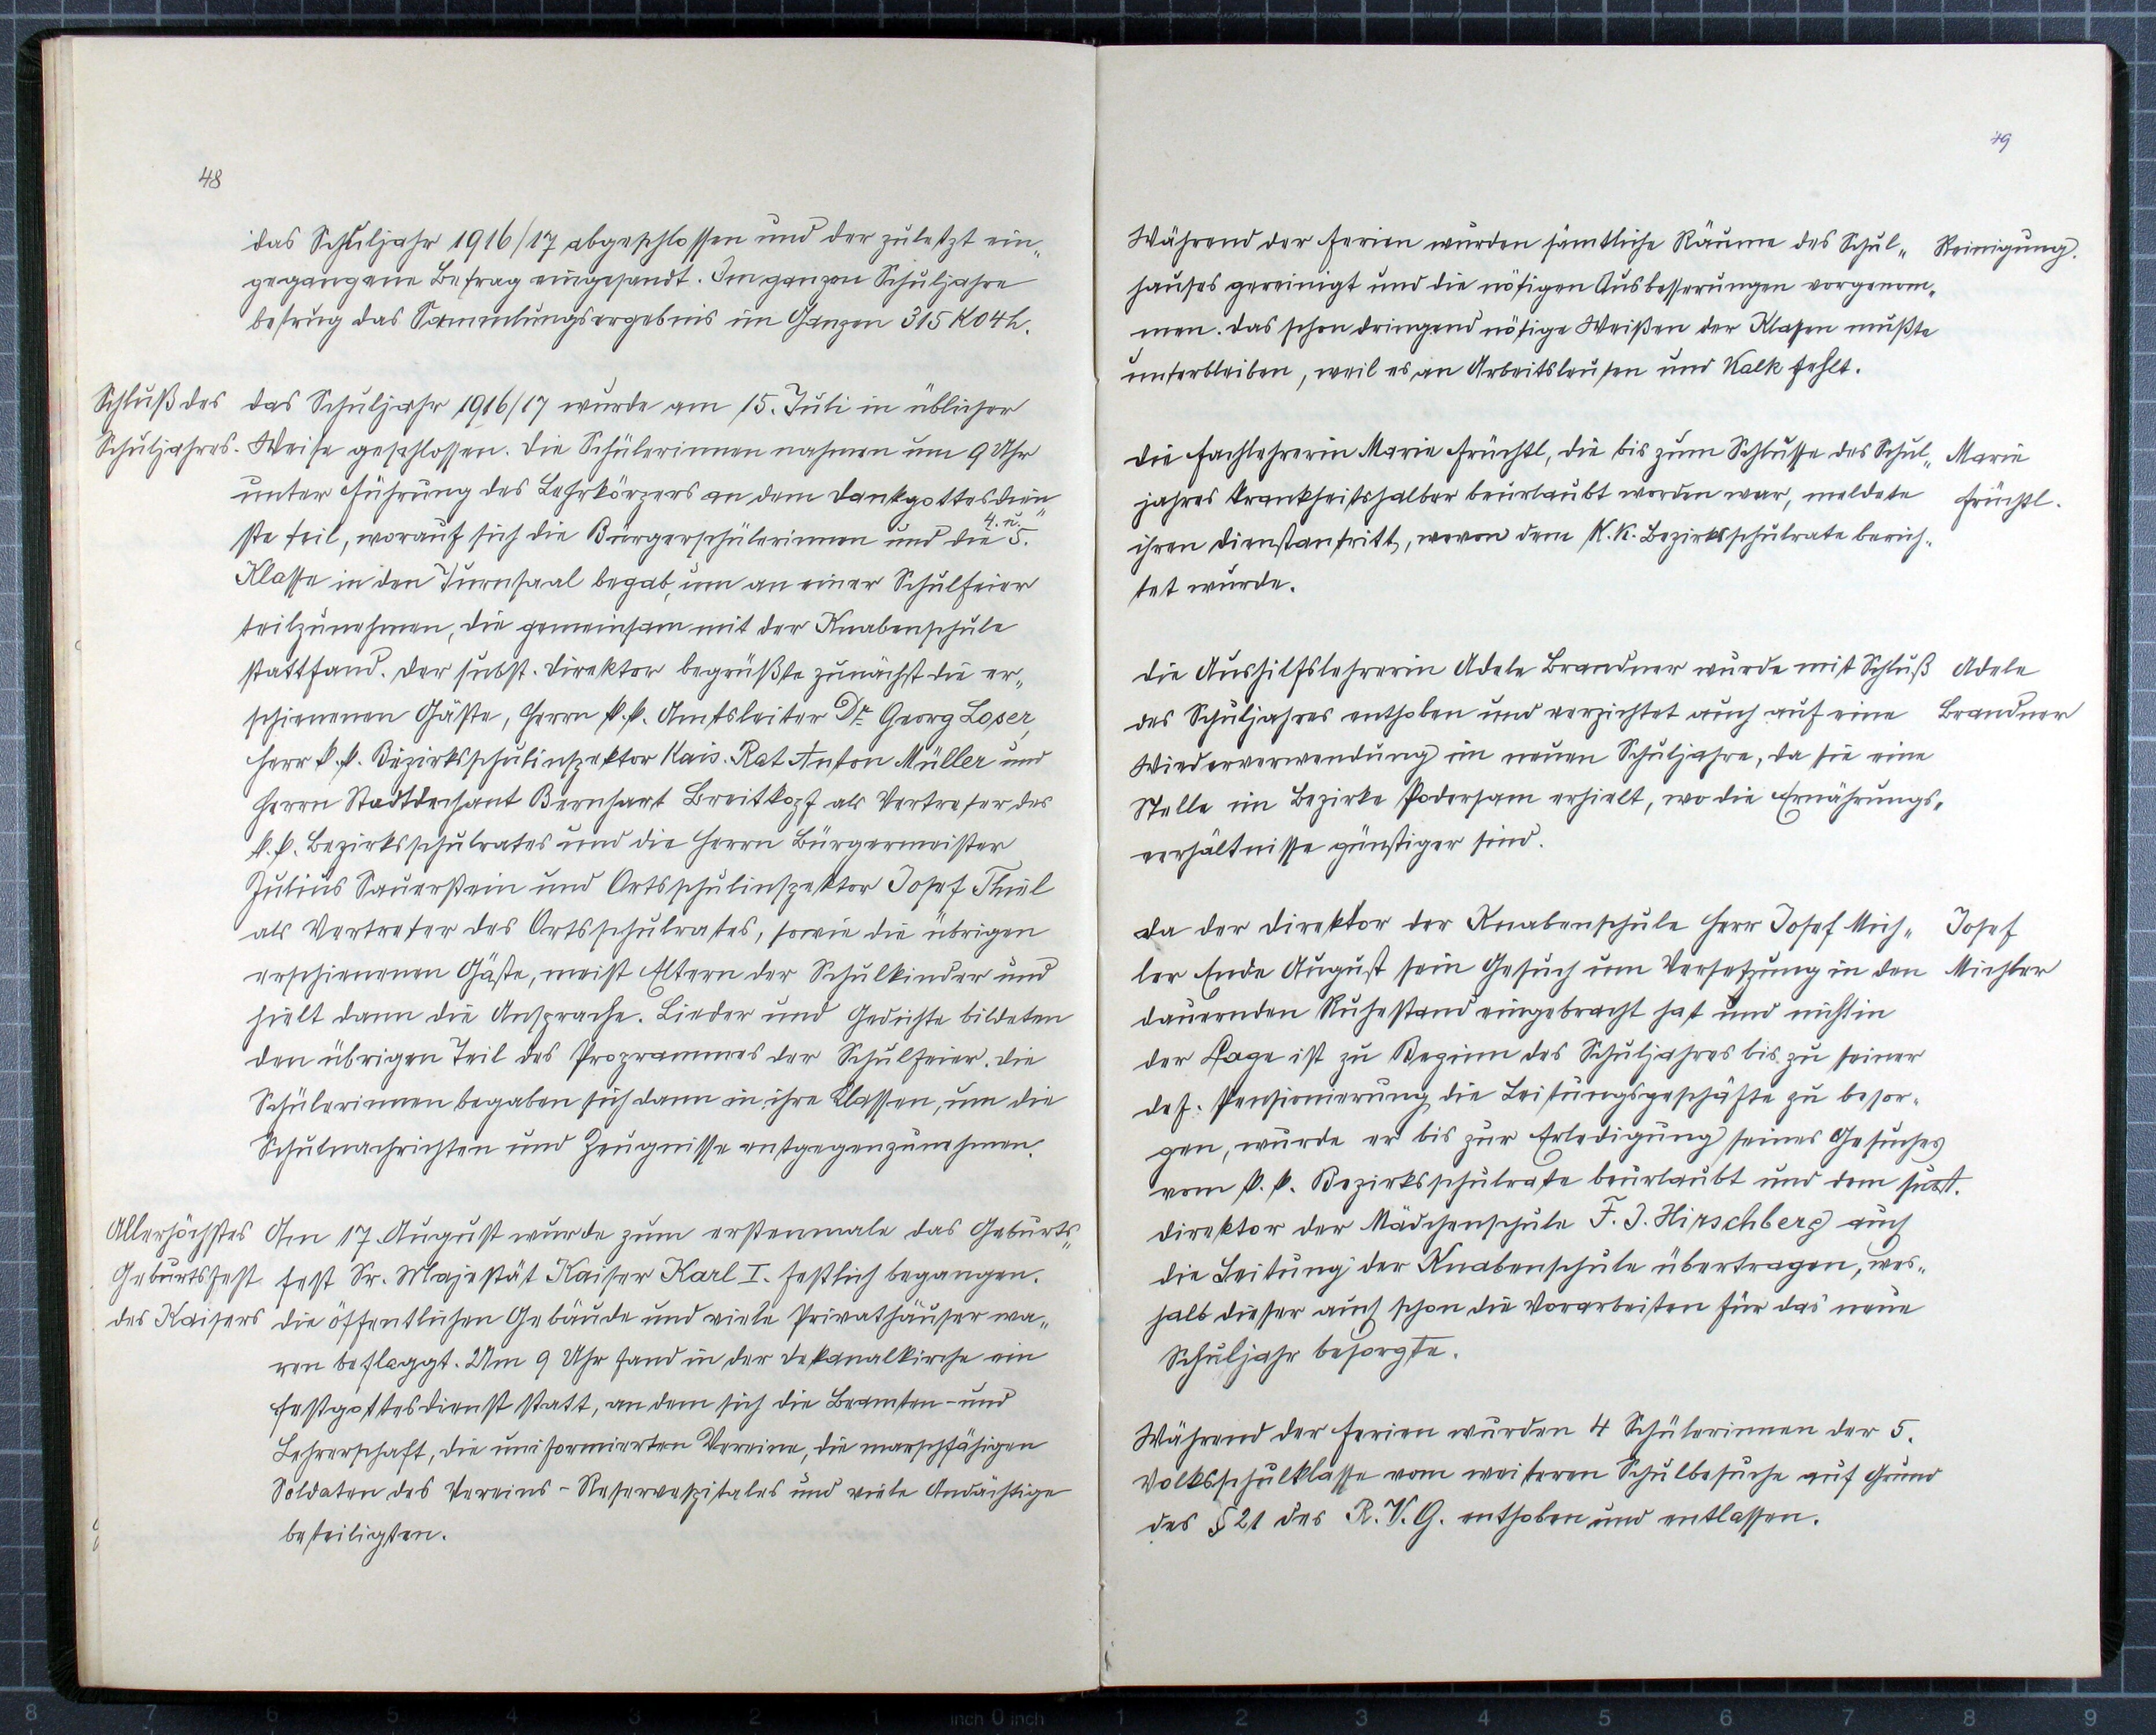 48
das Schuljahr 1916/17 abgeschlossen und der zuletzt ein„
gegangene Betrag eingesandt. Im ganzen Schuljahre
betrug das Sammlungsergebnis im Ganzen 315 K 04 h.
Schluß des
Schuljahres.
Das Schuljahr 1916/17 wurde am 15. Juli in üblicher
Weise geschlossen. Die Schülerinnen nahmen um 9 Uhr
unter Führung des Lehrkörpers an dem Dankgottesdien„
ste teil, worauf sich die Bürgerschülerinnen und die 4. u. 5.
Klasse in den Turnsaal begab, um an einer Schulfeier
teilzunehmen, die gemeinsam mit der Knabenschule
stattfand. Der subst. Direktor begrüßte zunächst die er„
schienenen Gäste, Herrn k.k. Amtsleiter Dr. Georg Loser,
Herr k.k. Bezirksschulinspektor Kais. Rat Anton Müller und
Herrn Stadtdechant Bernhart Breitkopf als Vertreter des
k.k. Bezirksschulrates und die Herrn Bürgermeister
Julius Sauerstein und Ortsschulinspektor Josef Thiel
als Vertreter des Ortsschulrates, sowie die übrigen
erschienenen Gäste, meist Eltern der Schulkinder und
hielt dann die Ansprache. Lieder und Gedichte bildeten
den übrigen Teil des Programmes der Schulfeier. Die
Schülerinnen begaben sich dann in ihre Klassen, um die
Schulnachrichten und Zeugnisse entgegenzunehmen.
Allerhöchstes
Geburtsfest
des Kaisers
Am 17. August wurde zum erstenmale das Geburts„
fest Sr. Majestät Kaiser Karl I. festlich begangen.
Die öffentlichen Gebäude und viele Privathäuser wa„
ren beflaggt. Um 9 Uhr fand in der Dekanalkirche ein
Festgottesdienst statt, an dem sich die Beamten- und
Lehrerschaft, die uniformierten Vereine, die marschfähigen
Soldaten des Vereins-Reservespitales und viele Andächtige
beteiligten.
49
Während der Ferien wurden sämtliche Räume des Schul„
hauses gereinigt und die nötigen Ausbesserungen vorgenom„
men. Das schon dringend nötige Weißen der Klassen mußte
unterbleiben, weil es an Arbeitsleuten und Kalk fehlt.
Reinigung.
Die Fachlehrerin Marie Früchtl, die bis zum Schlusse des Schul„
jahres krankheitshalber beurlaubt worden war, meldete
ihren Dienstantritt, wovon dem K.K. Bezirksschulrate berich„
tet wurde.
Marie
Früchtl.
Die Aushilfslehrerin Adele Brandner wurde mit Schluß
des Schuljahres enthoben und verzichtet auch auf eine
Wiederverwendung im neuen Schuljahre, da sie eine
Stelle im Bezirke Podersam erhielt, wo die Ernährungs„
verhältnisse günstiger sind.
Adele
Brandner
Da der Direktor der Knabenschule Herr Josef Mich„
ler Ende August sein Gesuch um Versetzung in den
dauernden Ruhestand eingebracht hat und nicht in
der Lage ist zu Beginn des Schuljahres bis zu seiner
def. Pensionierung die Leitungsgeschäfte zu besor„
gen, wurde er bis zur Erledigung seines Gesuches
vom k.k. Bezirksschulrate beurlaubt und dem subst.
Direktor der Mädchenschule F. J. Hirschberg auch
die Leitung der Knabenschule übertragen, wes„
halb dieser auch schon die Vorarbeiten für das neue
Schuljahr besorgte.
Josef
Michler
Während der Ferien wurden 4 Schülerinnen der 5.
Volksschulklasse vom weiteren Schulbesuche auf Grund
des § 21 des R.V.G. enthoben und entlassen.
8 7 6 5 4 3 2 1 inch 0 inch 1 2 3 4 5 6 7 8 9